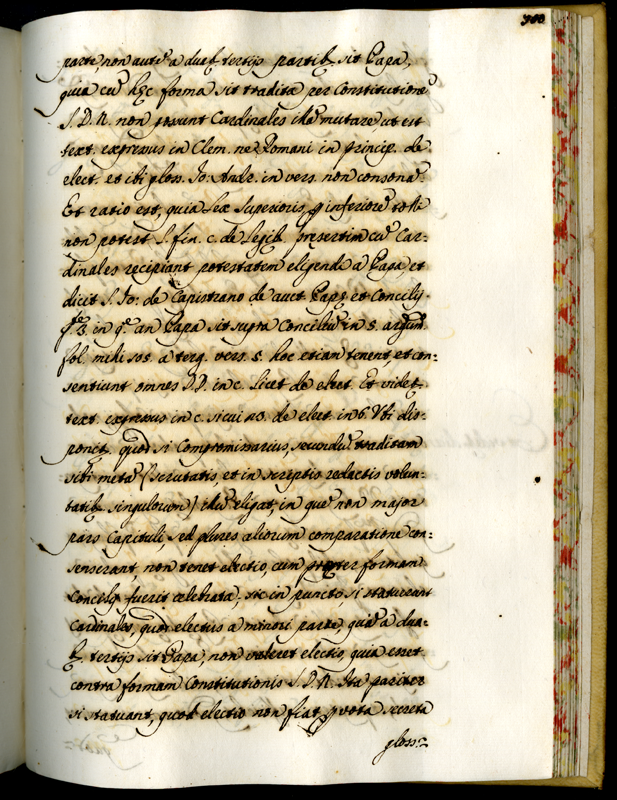 parte, non autē a duab. tertijs partib. sit Papa,
quia cū hęc forma sit tradita per Constitutionē
S. D. N. non possunt Cardinales illā mutare, ut est
text. expressus in Clem. ne Romani in princip. de
elect. et ibi gloss. Jo: Andr. in vers. non consona.
Et ratio est, quia Lex Superioris, p inferiorē tolli
non potest l. fin. c. de Legib. pręsertim cū Car=
dinales recipiant potestatem eligendi a Papa et
dicit S. Jo: de Capistrano de auct. Papę et Concilij
in q. an Papa sit supra Conciliū in 5. argum.
fol. mihi 505. a terg. vers. 5. hoc etiam tenent, et con=
sentiunt omnes D.D. in c. licet de elect. Et videt.
text. expressus in c. sicut de elect. in 6. Ubi dis=
ponit, quod si Compromissarius, secundū traditam
sibi metā (scrutatis, et in scriptis redactis volun=
tatib. singulorum) illū eligat, in quē non major
pars Capituli, sed plures aliorum comparatione con=
senserant, non tenet electio, cum pręter formam
Concilij fuerit celebrata, sic in puncto, si statuerant
Cardinales, quod electus a minori parte, quā a dua=
b. tertijs sit Papa, non valeret electio, quia esset
contra formam Constitutionis S. D. N. Ita pariter
si statuant, quod electio non fiat p vota secreta
gloss.